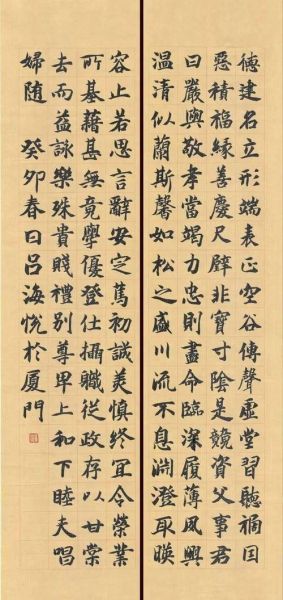 德建名立形端表正空谷傳聲虛堂習聽禍因
惡積福緣善慶尺璧非寶寸陰是競資父事君
曰嚴與敬孝當竭力忠則盡命臨深履薄夙興
温清似蘭斯馨如松之盛川流不息淵澄取暎
容止若思言辭安定篤初誠美慎終宜令榮業
所基藉甚無竟學優登仕攝職從政存以甘棠
去而益詠樂殊貴賤禮別尊卑上和下睦夫唱
婦随 癸卯春日吕海悦於厦門